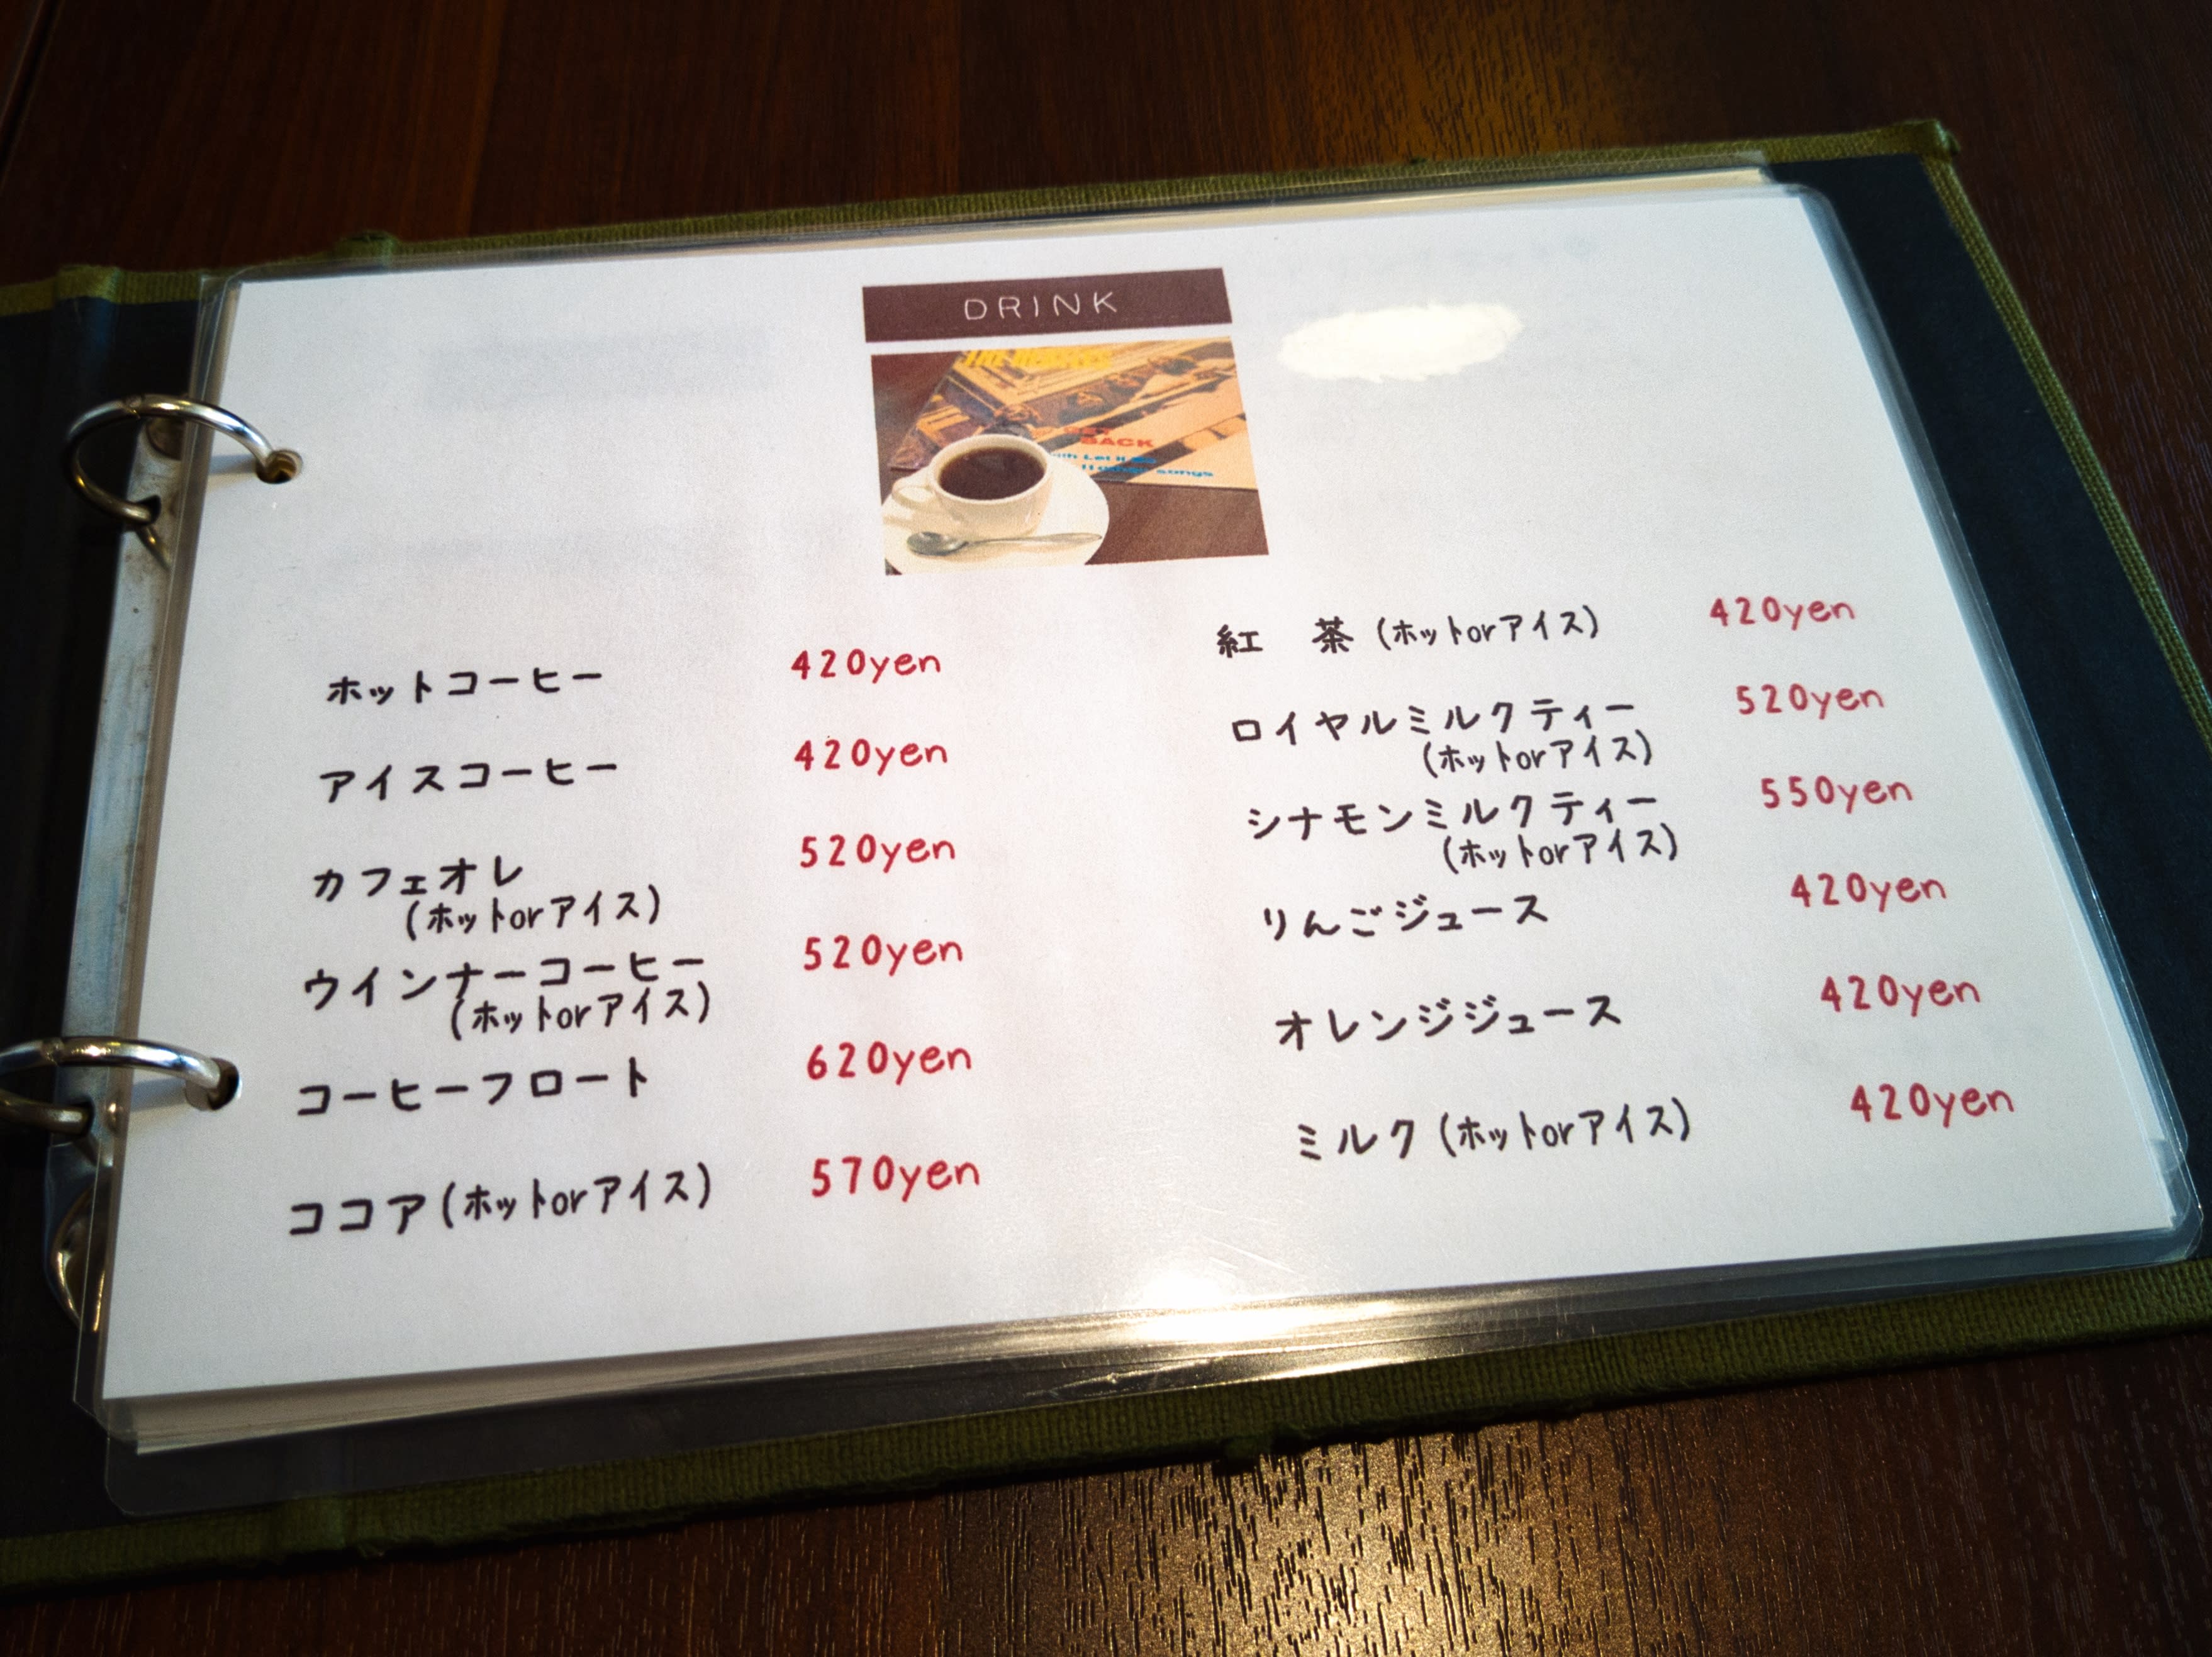 DRINK
THE BEATLES
GET
BACK
with Let It Be
songs
ホットコーヒー 420yen
アイスコーヒー 420yen
カフェオレ 520yen
(ホットorアイス)
ウインナーコーヒー 520yen
(ホットorアイス)
コーヒーフロート 620yen
ココア(ホットorアイス) 570yen
紅 茶(ホットorアイス) 420yen
ロイヤルミルクティー 520yen
(ホットorアイス)
シナモンミルクティー 550yen
(ホットorアイス)
りんごジュース 420yen
オレンジジュース 420yen
ミルク(ホットorアイス) 420yen